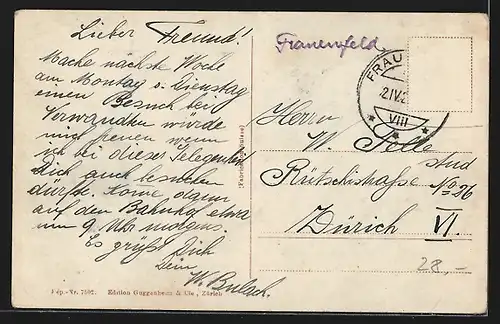 Lieber Freund!
Mache nächste Woche
am Montag o. Dienstag
einen Besuch bei
Verwandten würde
mich freuen wenn
ich bei dieser Gelegenheit
Dich auch besuchen
dürfte. Komme dann
auf den Bahnhof etwa
um 9 Uhr morgens.
Es grüßt Dich
Dein
W. Bulach.
Dép.-Nr. 7592. Edition Guggenheim & Cie., Zürich
Frauenfeld.
FRAU
2.IV.2
VIII
Herrn
W.
stud
Rütschistraße No 26
Zürich VI.
28.-